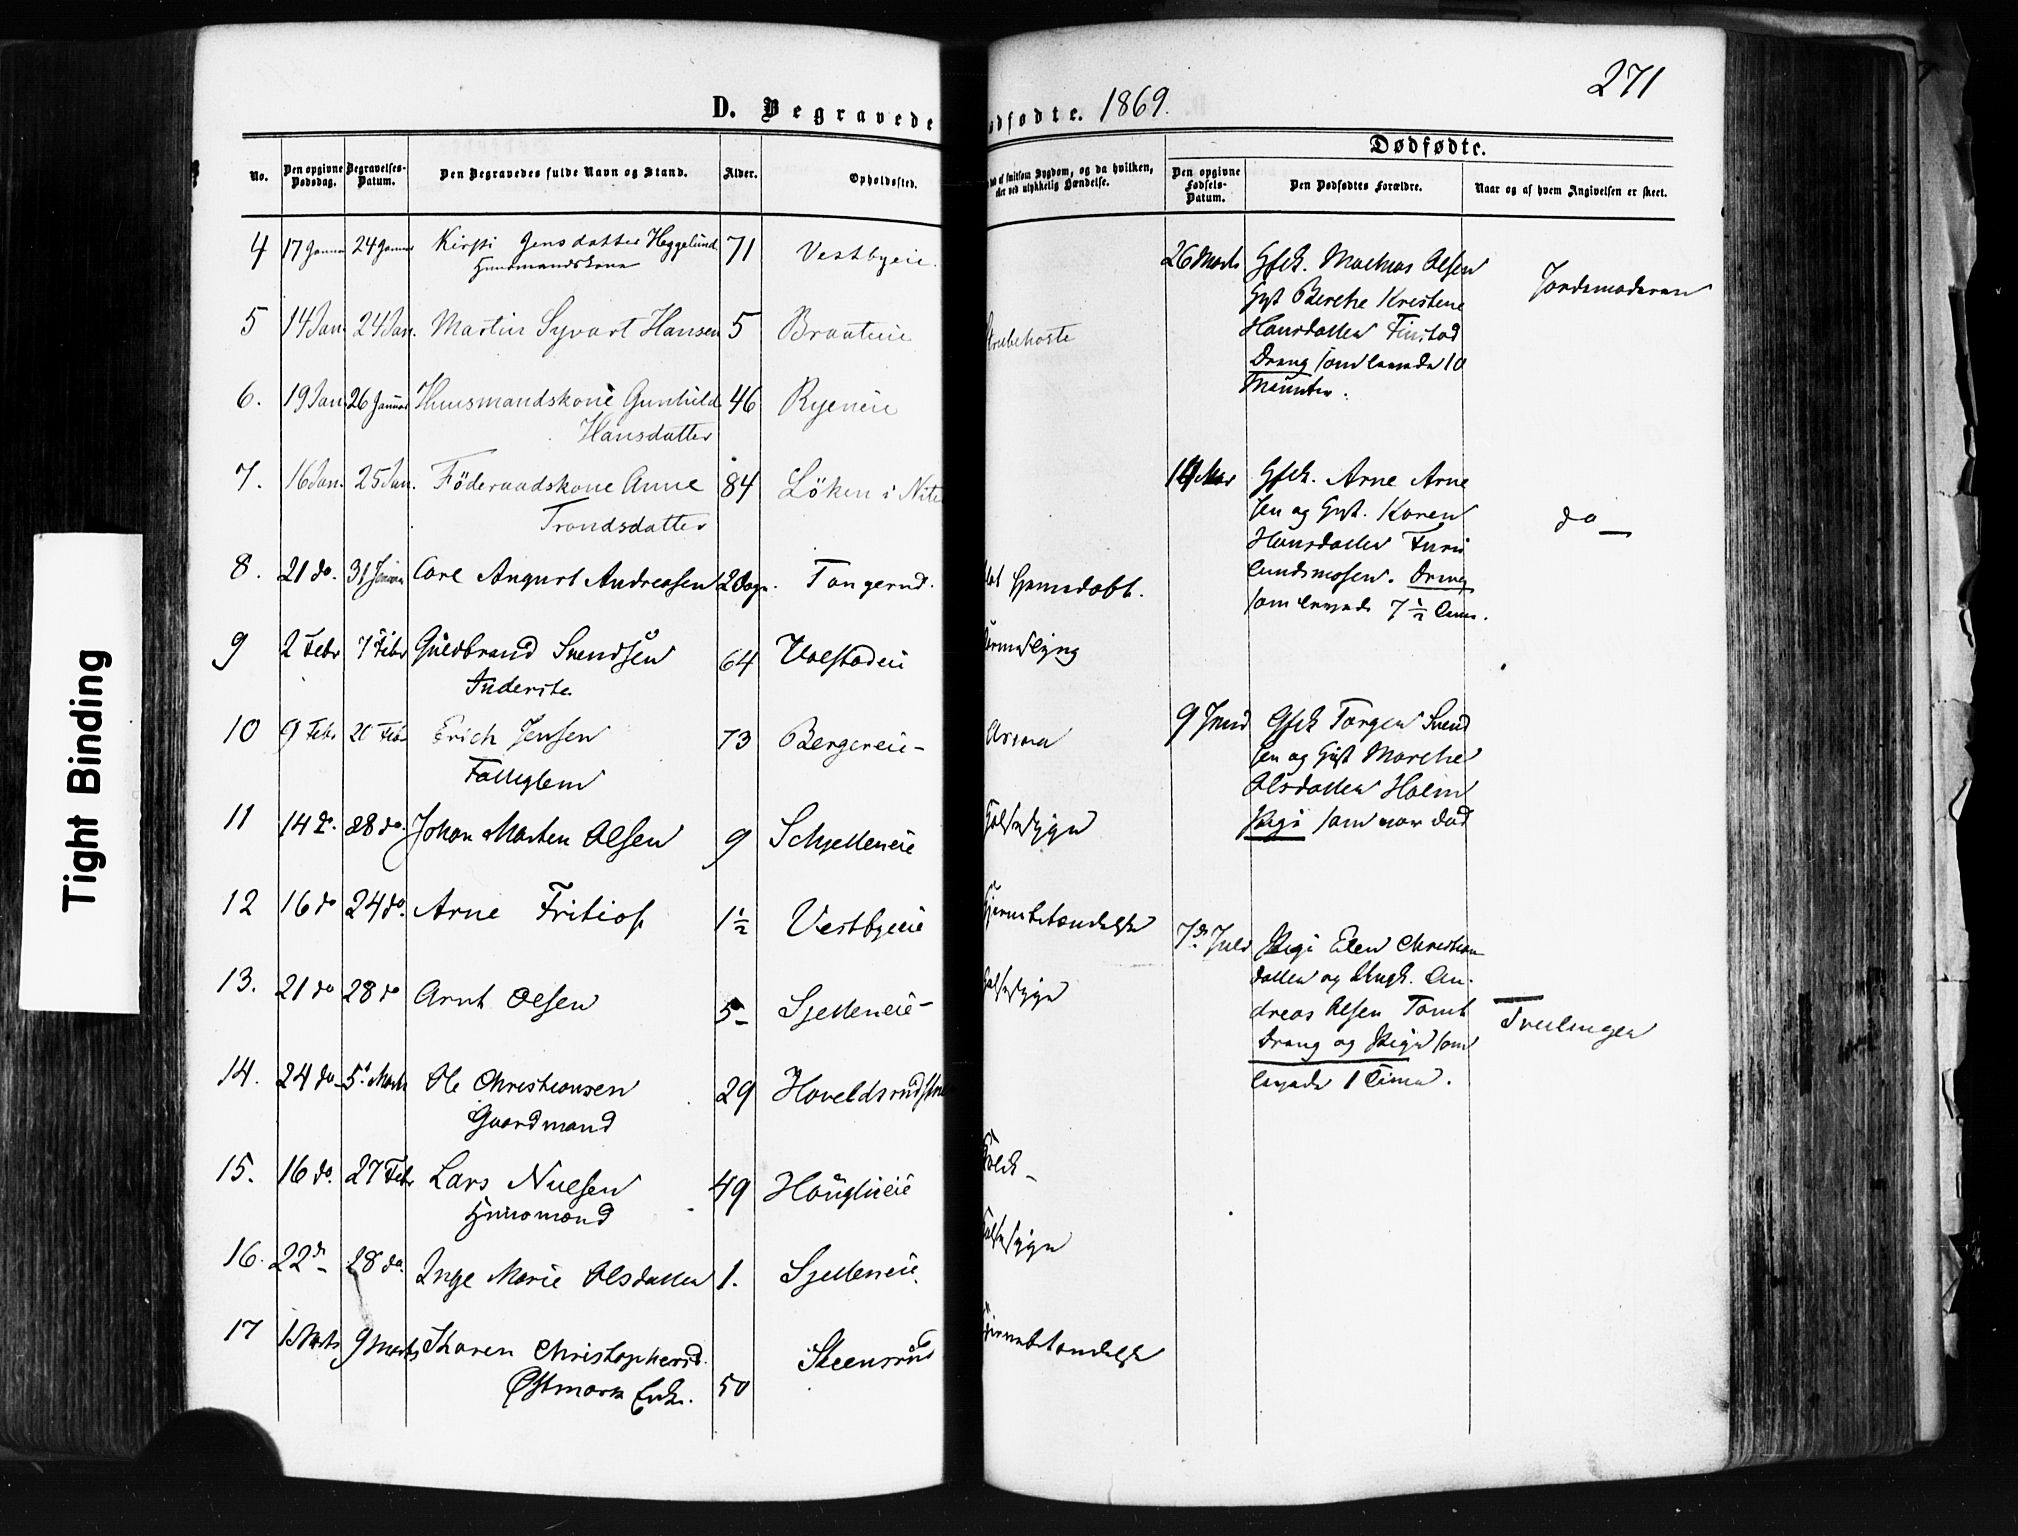 271
D. Begravede
ødfødte. 1869.
Dødfødte.
No.
Den opgivne Dødsdag.
Begravelses-Datum.
Den Begravedes fulde Navn og Stand.
Alder.
Opholdssted.
af smitsom Sygdom, og da hvilken,
eller ved ulykkelig Hændelse.
Den opgivne Fødsels-Datum.
Den Dødfødtes Forældre.
Naar og af hvem Angivelsen er skeet.
4 17 Januar 24 Januar Kirsti Jensdatter Heggelund 71 Vestbyeie.
Huusmandskone
5 14 Jan. 24 Jan. Martin Syvart Hansen 5 Braateie
Strubehoste
6. 19 Jan 26 Januar Huusmandskone Gunhild 46 Ryeneie
Hansdatter
7. 16 Jan. 25 Jan. Föderaadskone Anne 84 Löken i Nite
Trondsdatter
8. 21 do. 31 Januar Carl August Andreasen 2 Dage. Tangerud.
Hjemmedøbt.
9 2 Febr 7 Febr Guldbrand Svendsen 64 Ulvstadeie
Inderste
10 9 Febr 20 Febr Erich Jensen 73 Bergereie-
Fattiglem
11 14 d. 28 do. Johan Marten Olsen 9 Schjelleneie
Halssyge
12 16 do 24 do. Arne Fritiof 1½ Vestbyeie
Hjernebetændelse
13. 21 do 28 do Arnt Olsen 5- Sjelleneie-
Halssyge
14. 24 do 5 Marts Ole Christiansen 29 Haveldsrud
Gaardmand
15. 16 do. 27 Febr Lars Nielsen 49 Hauglieie
Huusmand
16. 22 d. 28 do. Inge Marie Olsdatter 1. Sjelleneie.
Halssyge
17 1 Marts 9 Marts Karen Christophersd. Steensrud
Østmork Enke. 50
Hjernebetændelse
26 Marts Gfst. Mathias Olsen
Gyst Berthe Kristine
Hansdatter Finstad
Dreng som levede 10
Minutter.
Jordemoderen
Gfst. Arne Arne
sen og Gyst. Karen
Hansdatter Furu
lundsmosen. Dreng
som levede 7½ Time.
do —
9 Juni Gfst Torger Svend
sen og Gyst Marthe
Olsdatter Holm
Pige som var død
7de Juli Pige Elen Christian
datter og Ungk. An-
dreas Olsen Tomt
Dreng og Pige som
levede 1 Time.
Tvillinger
Tight Binding